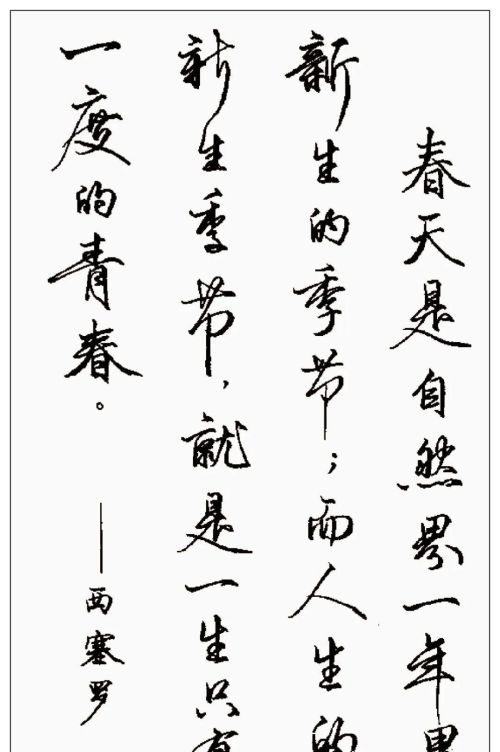 春天是自然界一年里
新生的季节；而人生的
新生季节，就是一生只有
一度的青春。
——西塞罗